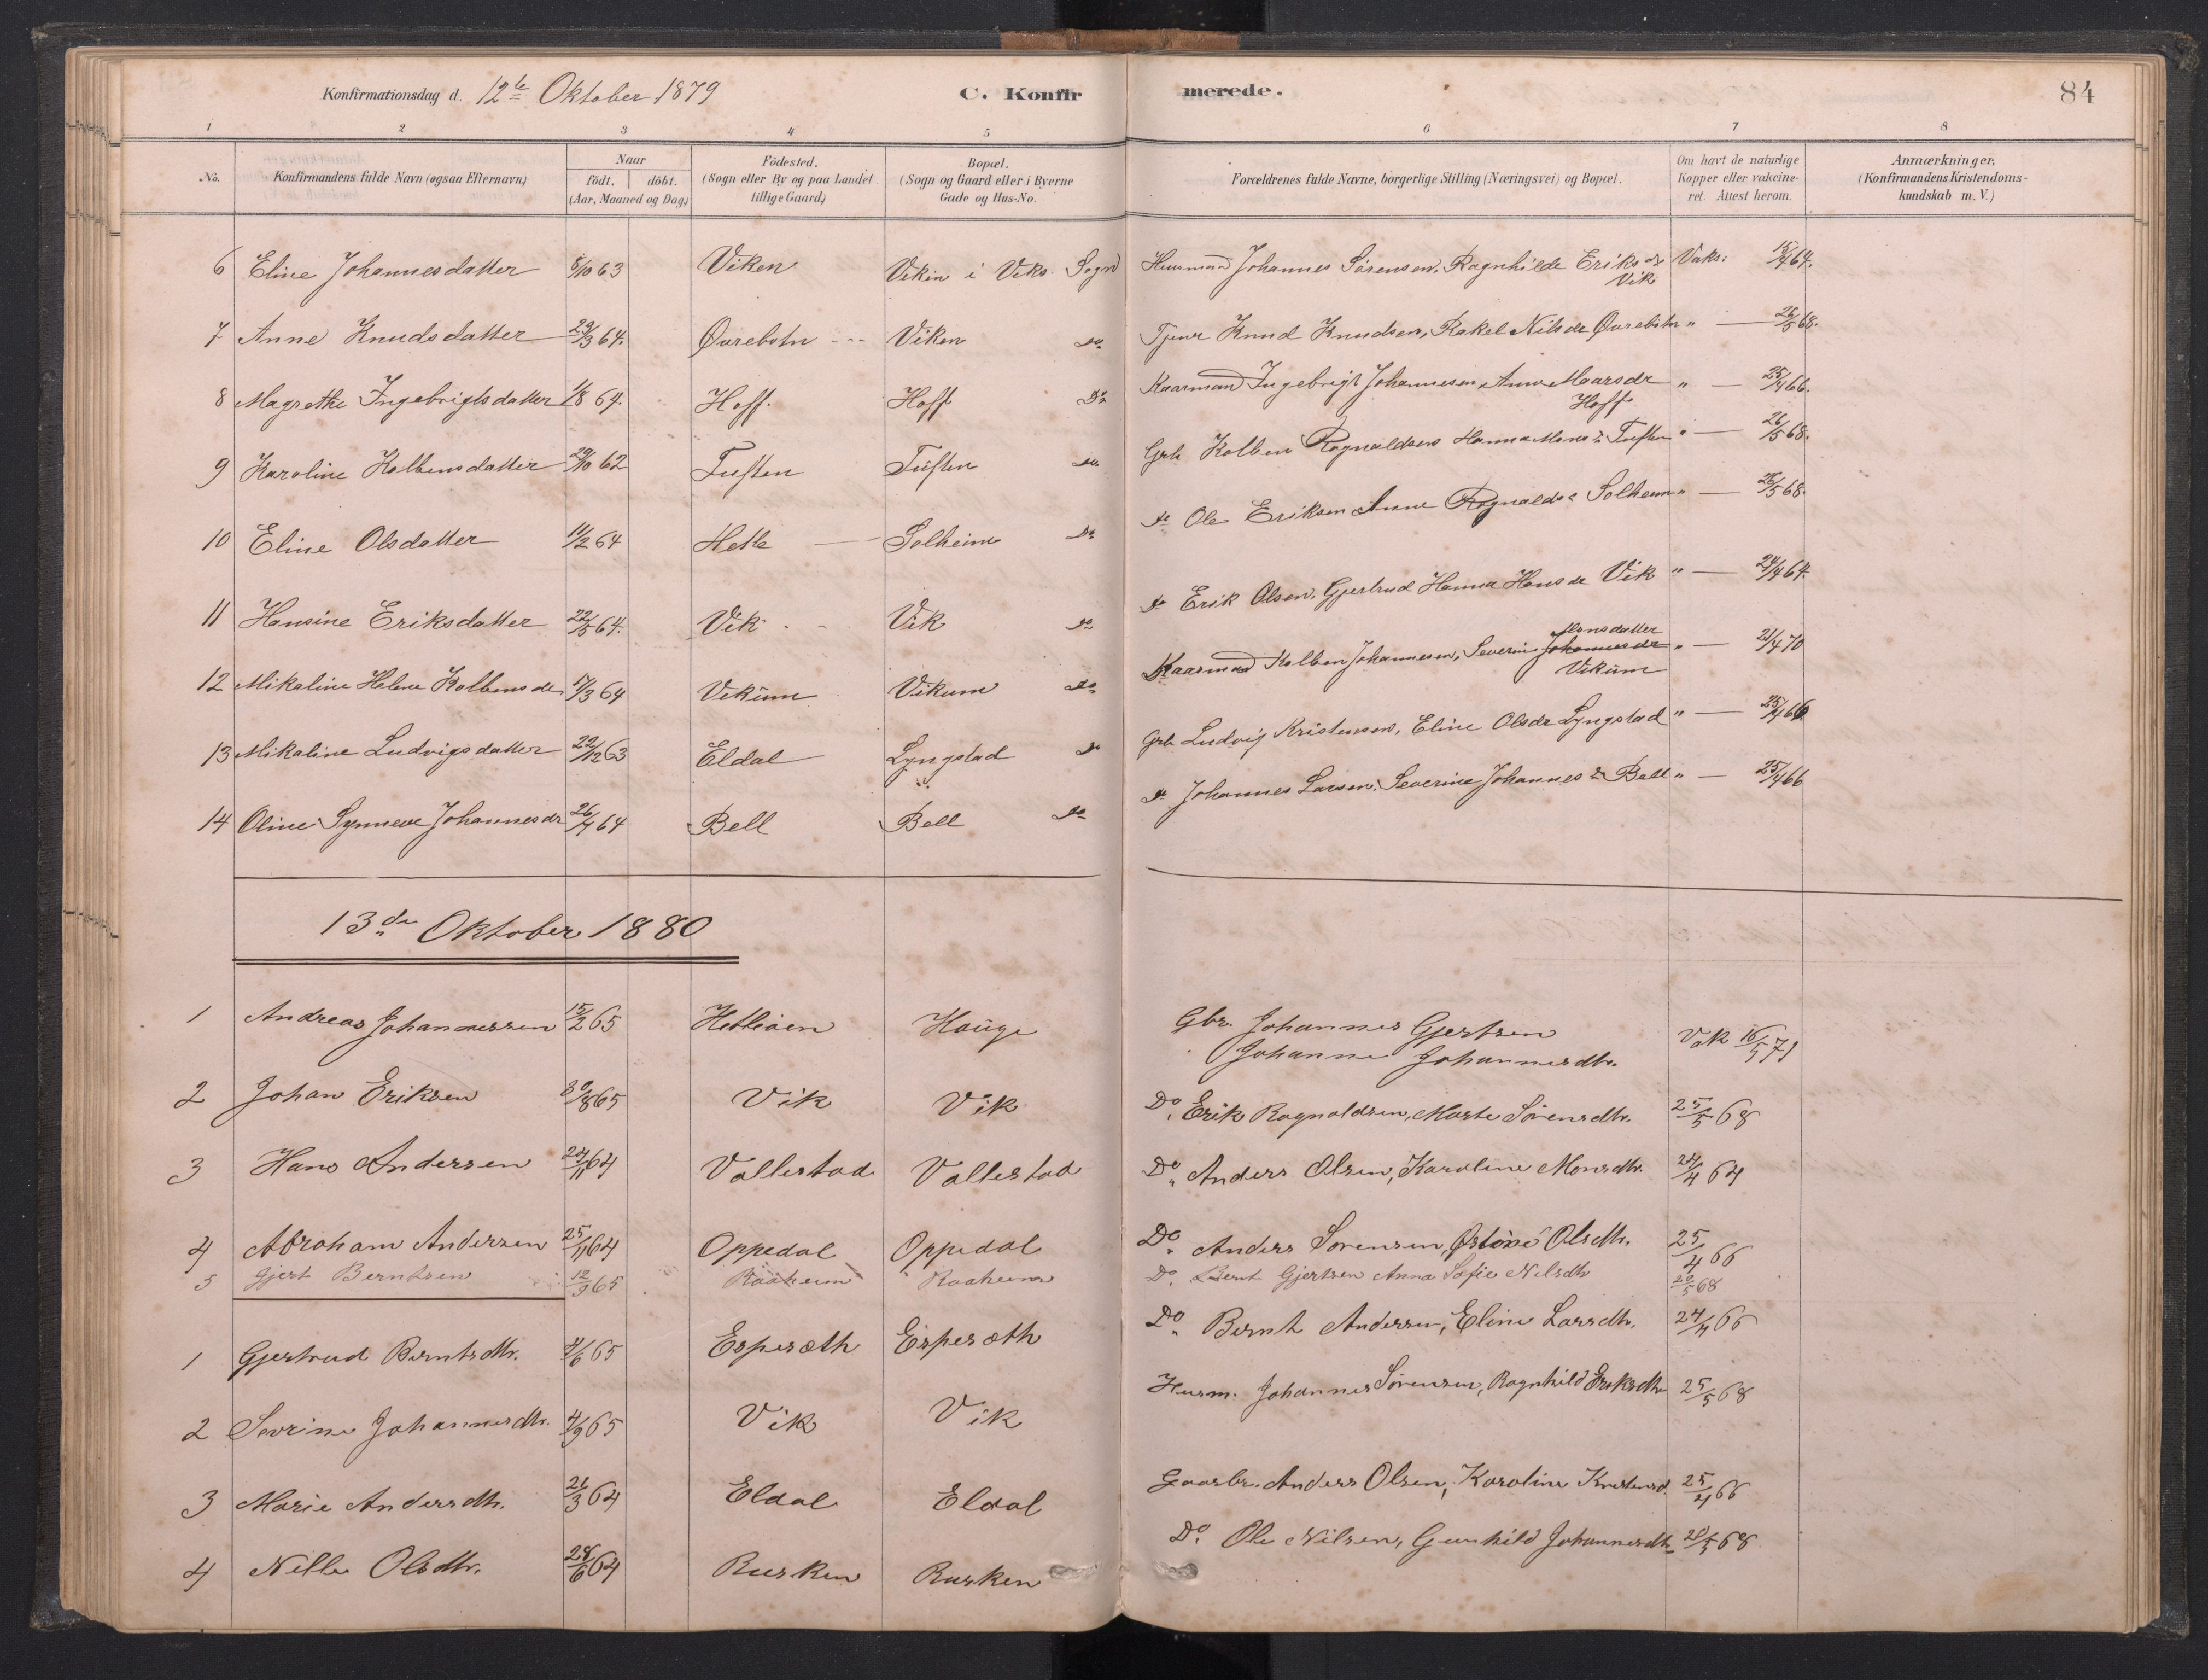 Konfirmationsdag d. 12te Oktober 1879 C. Konfirmerede. 84
1 2 3 4 5 6 7 8
No. Konfirmandens fulde Navn (ogsaa Efternavn) Naar födt. döbt. (Aar, Maaned og Dag.) Födested. (Sogn eller By og paa Landet tillige Gaard.) Bopæl. (Sogn og Gaard eller i Byerne Gade og Hus-No. Forældrenes fulde Navne, borgerlige Stilling (Næringsvei) og Bopæl. Om havt de naturlige Kopper eller vakcineret. Attest herom. Anmærkninger. (Konfirmandens Kristendomskundskab m. V.)
6 Eline Johannesdatter 8/10 63 Viken Viken i Viks Sogn Husmand Johannes Sörensen, Ragnhilde Eriksdr Vik Vaks: 15/4 64.
7 Anne Knudsdatter 29/3 64. Øvrebotn Viken do Tjener Knud Knudsen, Rakel Nilsdr Øvrebotn " — 26/5 68.
8 Magrethe Ingebrigtsdatter 1/8 64. Hoff. Hoff Do Kaarmand Ingebrigt Johannesen, Anne Maarsdr Hoff " — 25/4 66.
9 Karoline Kolbensdatter 29/10 62 Tuften Tuften do Grb Kolben Ragnaldsen Hanna Monsdr Tuften " — 26/5 68.
10 Eline Olsdatter 11/2 64 Hetle Solheim Do do Ole Eriksen Anne Ragnaldsdr Solheim " — 26/5 68.
11 Hansine Eriksdatter 22/5 64. Vik Vik do do Erik Olsen, Gjertrud Hanna Hansdr Vik " — 24/4 64.
12 Mikaline Helene Kolbensdr 17/3 64 Vikum Vikum do Kaarmand Kolben Johannesen, Severine Johannesdr Monsdatter Vikum " — 21/4 70
13 Mikaline Ludvigsdatter 22/12 63 Eldal Lyngstad do Grb Ludvig Kristensen, Eline Olsdr Lyngstad " — 25/4 66
14 Oline Synneve Johannesdr 26/4 64 Bell Bell do do Johannes Larsen, Severine Johannesdr Bell " — 25/4 66
13de Oktober 1880
1 Andreas Johannessen 15/2 65 Hetleöen Hauge Gbr. Johannes Gjertsen
Johanne Johannesdtr. Vak 16/5 71
2 Johan Eriksen 30/8 65 Vik Vik Do. Erik Ragnaldsen, Marte Sörensdtr. 25/5 68
3 Hans Andersen 24/11 64 Vallestad Vallestad Do. Anders Olsen, Karoline Monsdtr. 24/4 64
4 Abraham Andersen 25/11 64 Oppedal Oppedal Do. Anders Sörensen, Olsdtr. 25/4 66
5 Gjert Berntsen 12/3 65 Raaheim Raaheim Do. Bernt Gjertsen Anna Sofie Nilsdtr 26/5 68
1 Gjertrud Berntsdtr. 4/6 65 Espesæth Espesæth Do. Bernt Andersen, Eline Larsdtr. 24/4 66
2 Sevrine Johannesdtr. 4/9 65 Vik Vik Husm. Johannes Sörensen, Ragnhild Eriksdtr 25/5 68
3 Marie Andersdtr. 26/3 64 Eldal Eldal Gaarbr. Anders Olsen, Karoline Kristensd. 25/4 66
4 Nille Olsdtr. 28/6 64 Rusken Rusken Do. Ole Nilsen, Gunhild Johannesdtr 25/5 68